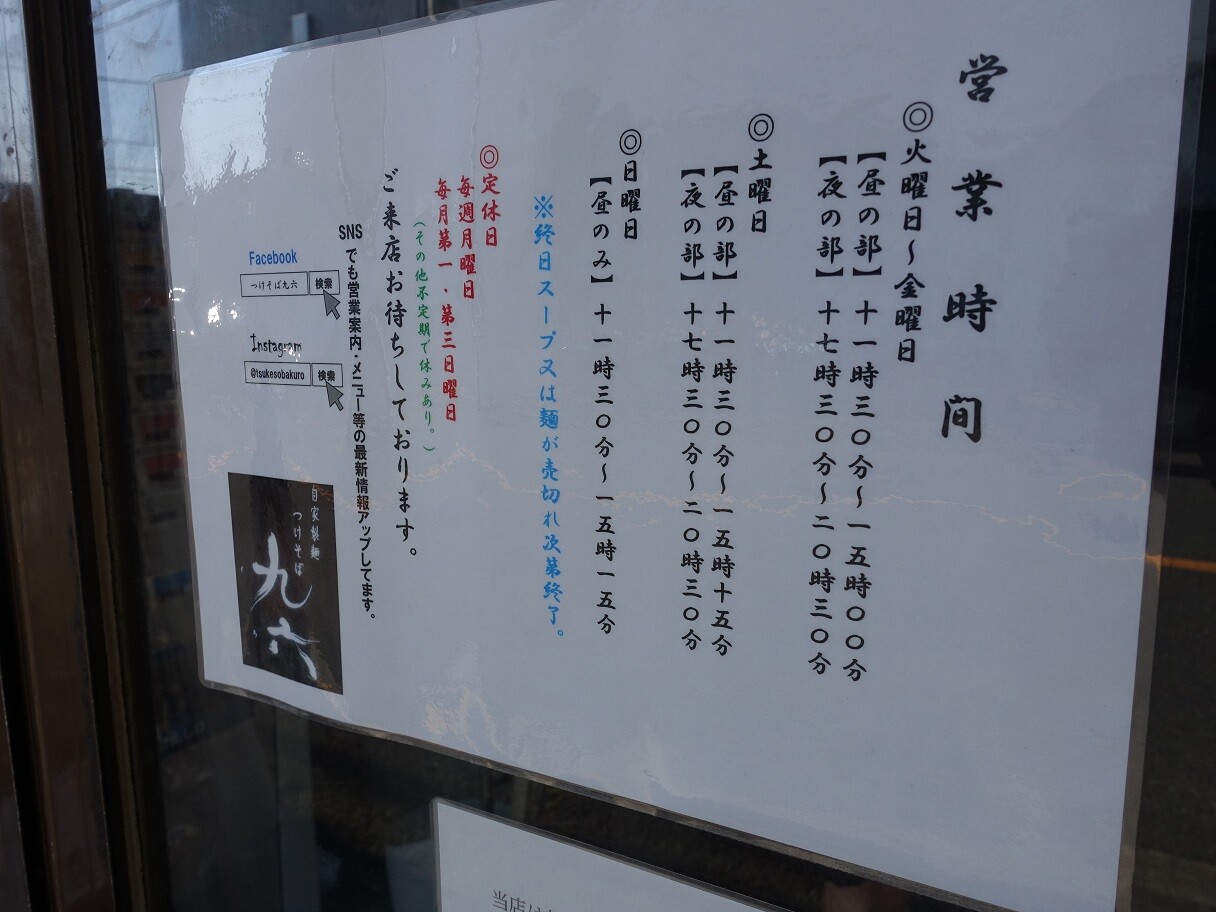 営業時間
◎火曜日～金曜日
【昼の部】十一時三〇分～一五時〇〇分
【夜の部】十七時三〇分～二〇時三〇分
◎土曜日
【昼の部】十一時三〇分～一五時十五分
【夜の部】十七時三〇分～二〇時三〇分
◎日曜日
【昼のみ】十一時三〇分～一五時一五分
※終日スープ又は麺が売切れ次第終了。
◎定休日
毎週月曜日
毎月第一・第三日曜日
（その他不定期で休みあり。）
ご来店お待ちしております。
SNSでも営業案内・メニュー等の最新情報アップしてます。
Facebook
つけそば九六 検索
Instagram
@tsukesobakuro 検索
自家製麺
つけそば
九六
当店は